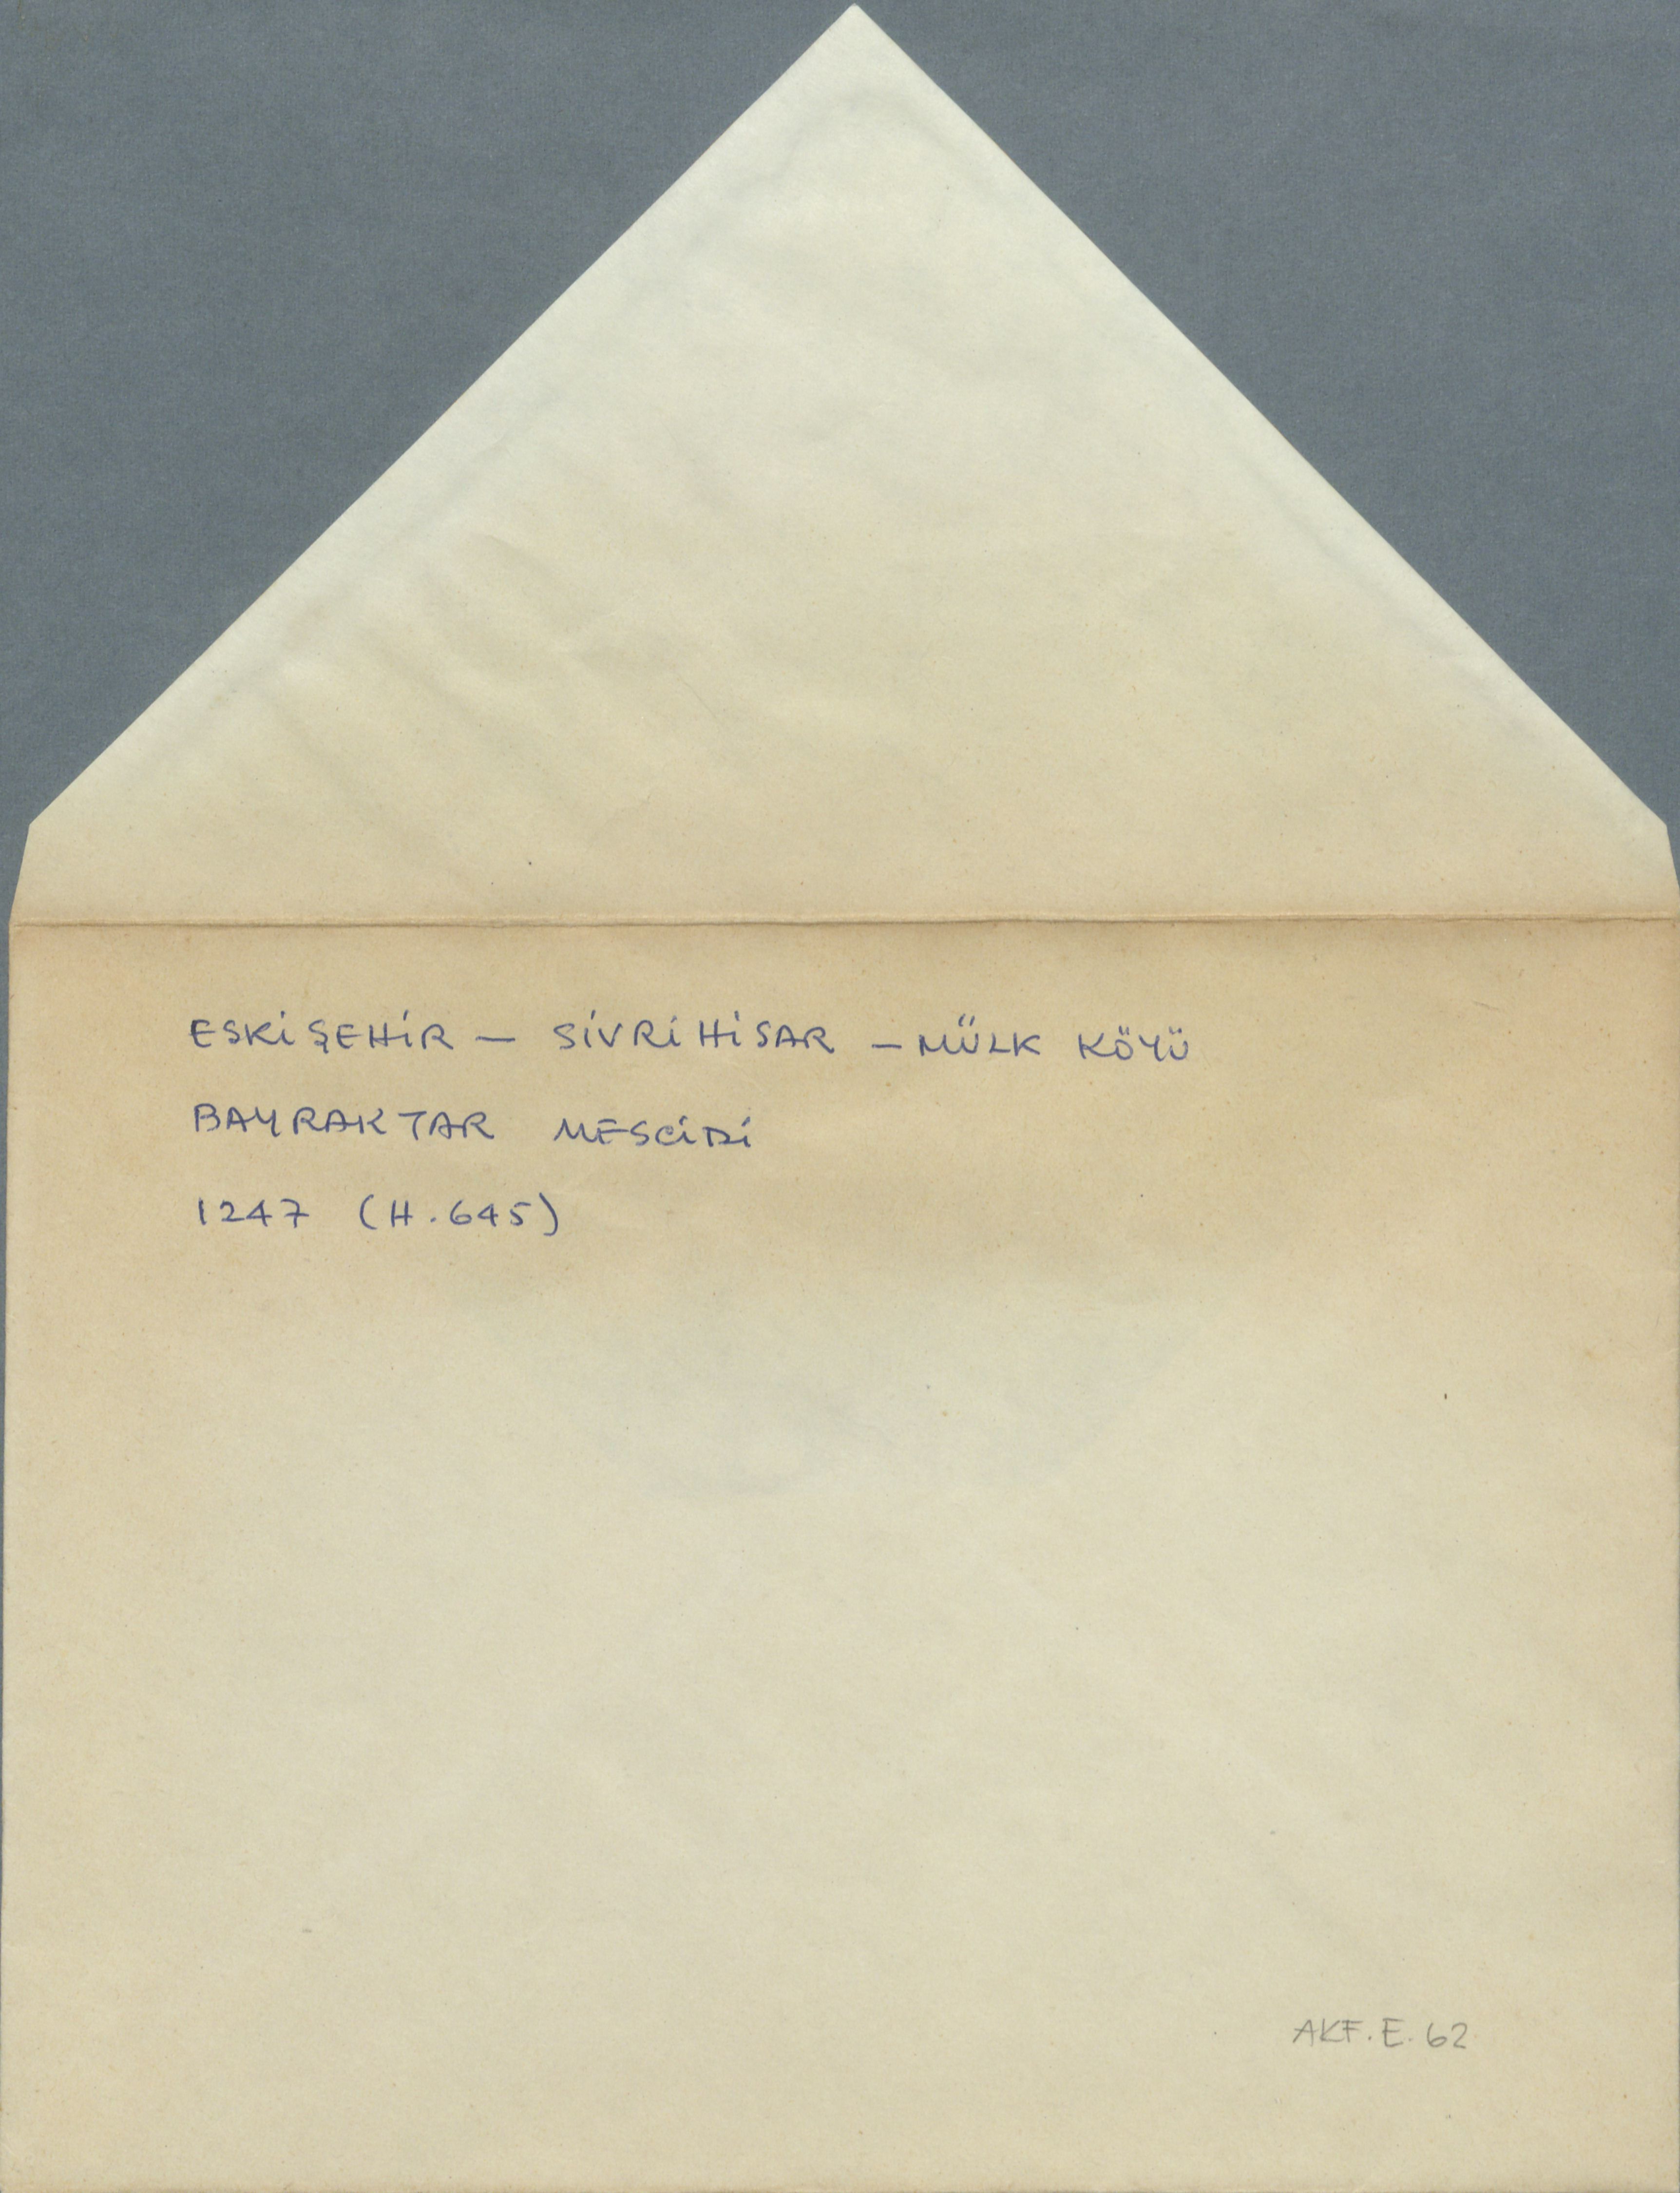 ESKİŞEHİR — SİVRİHİSAR — MÜLK KÖYÜ
BAYRAKTAR MESCİDİ
1247 (H.645)
AKF.E.62